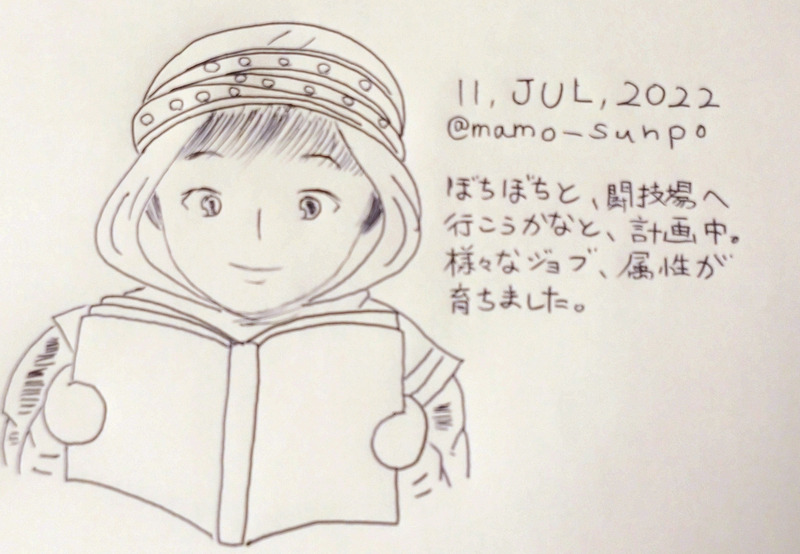 11, JUL, 2022
@mamo_sunpo
ぼちぼちと、闘技場へ
行こうかなと、計画中。
様々なジョブ、属性が
育ちました。